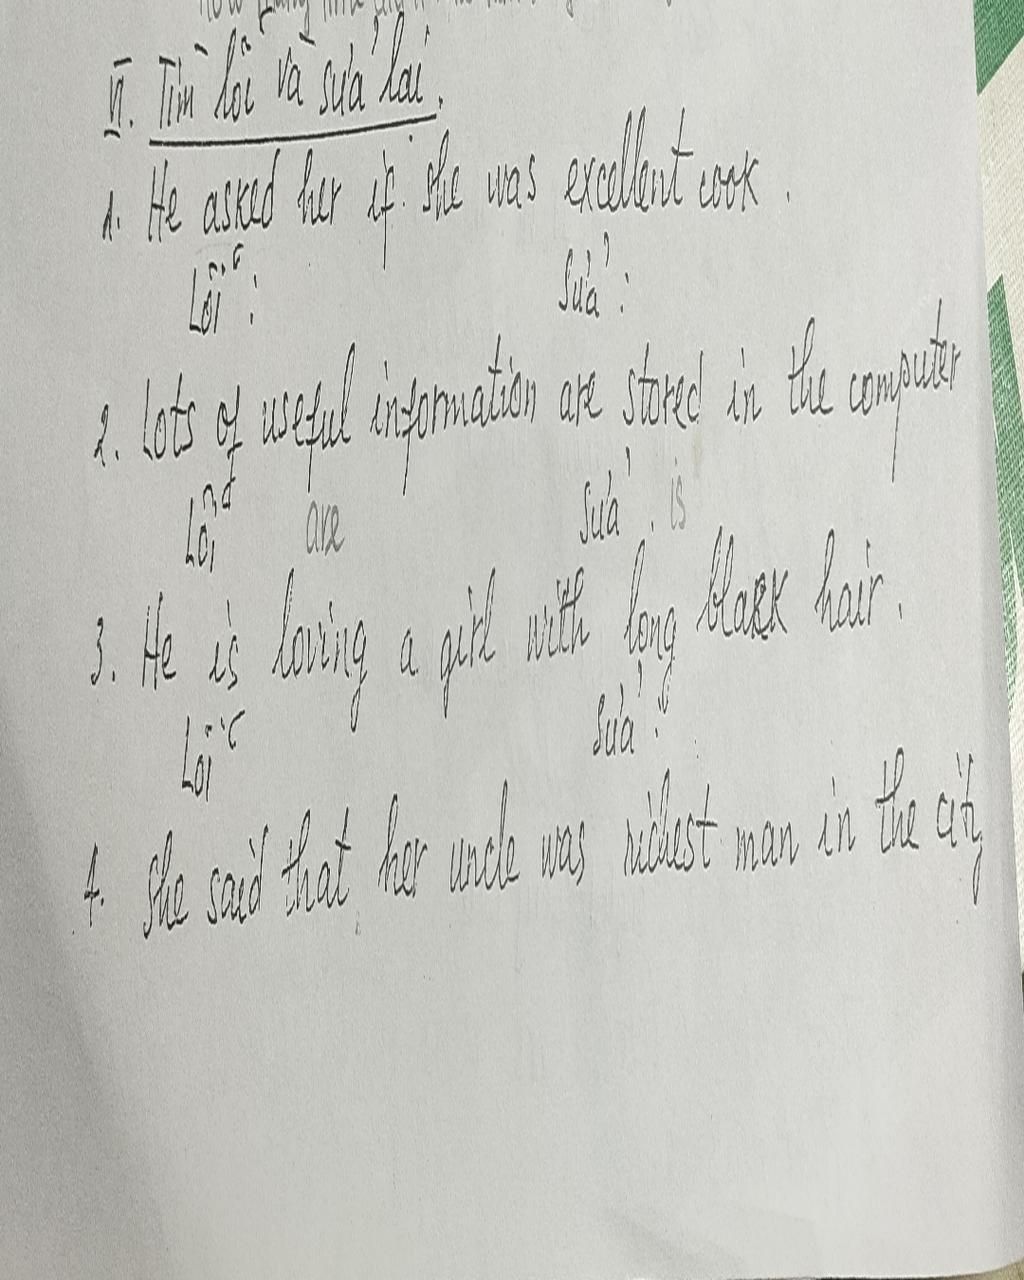 VI. Tìm lỗi và sửa lại.
1. He asked her if she was excellent cook.
Lỗi: Sửa:
2. Lots of useful information are stored in the computer
Lỗi are Sửa: is
3. He is loving a girl with long black hair.
Lỗi Sửa:
4. She said that her uncle was richest man in the city